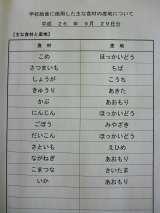 学校給食に使用した主な食材の産地について
平成 26年 9月 29日分
【主な食材と産地】
食材 産地
こめ ほっかいどう
さつまいも ちば
しょうが こうち
きゅうり あきた
かぶ あおもり
にんじん ほっかいどう
ごぼう みやざき
だいこん ほっかいどう
さといも えひめ
ながねぎ あおもり
こまつな さいたま
いか あおもり